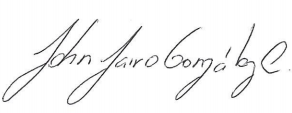 John Jairo Gonzálz C.